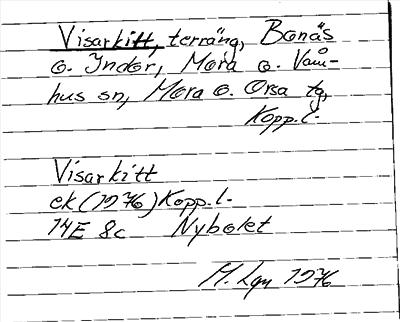 Visarkitt, terräng, Bonäs
o. Indor, Mora o. Våm-
hus sn, Mora o. Orsa tg,
Kopp. l.
Visarkitt
ek (1976) Kopp. l.
14E 8c Nybolet
M. Lgn 1976